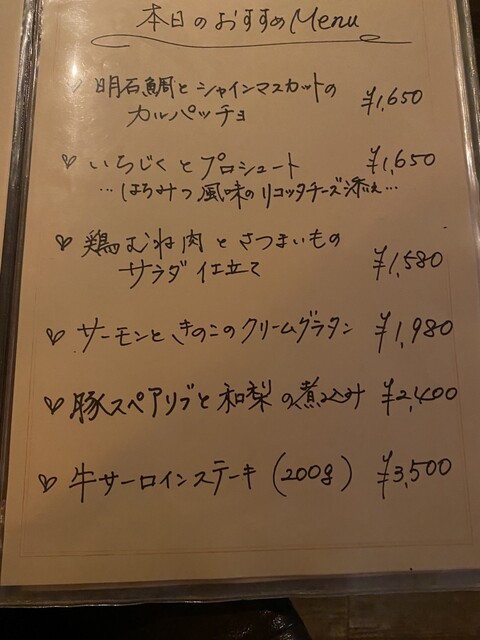 本日のおすすめMenu
明石鯛とシャインマスカットの ¥1,650
カルパッチョ
いちじくとプロシュート ¥1,650
…はちみつ風味のリコッタチーズ添え…
鶏むね肉とさつまいもの
サラダ仕立て ¥1,580
サーモンときのこのクリームグラタン ¥1,980
豚スペアリブと和梨の煮込み ¥2,400
牛サーロインステーキ(200g) ¥3,500